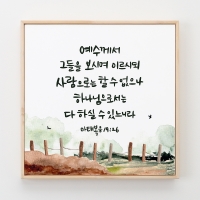 예수께서
그들을 보시며 이르시되
사람으로는 할 수 없으나
하나님으로서는
다 하실 수 있느니라
마태복음 19:26